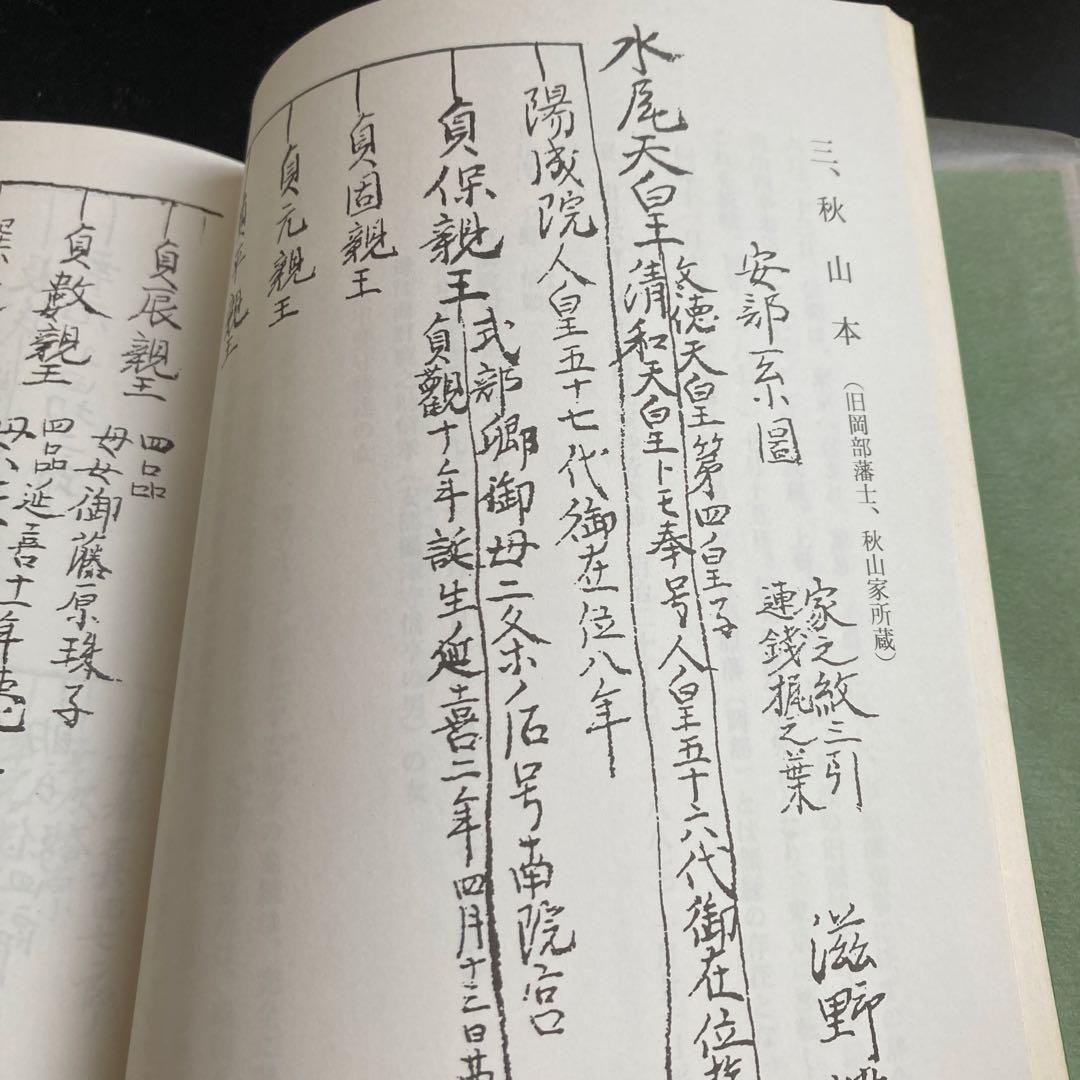 三、秋山本(旧岡部藩士、秋山家所蔵)
滋野
安部系圖
家之紋三引
連錢梶之葉
水尾天皇
文徳天皇第四皇子
清和天皇トモ奉号人皇五十六代御在位
陽成院人皇五十七代御在位八年
貞保親王
式部卿御母二条ノ后号南院宮
貞觀十年誕生延喜二年四月十三日
貞固親王
貞元親王
貞平親王
貞辰親王
四品
母女御藤原珠子
貞數親王
四品延喜十
母